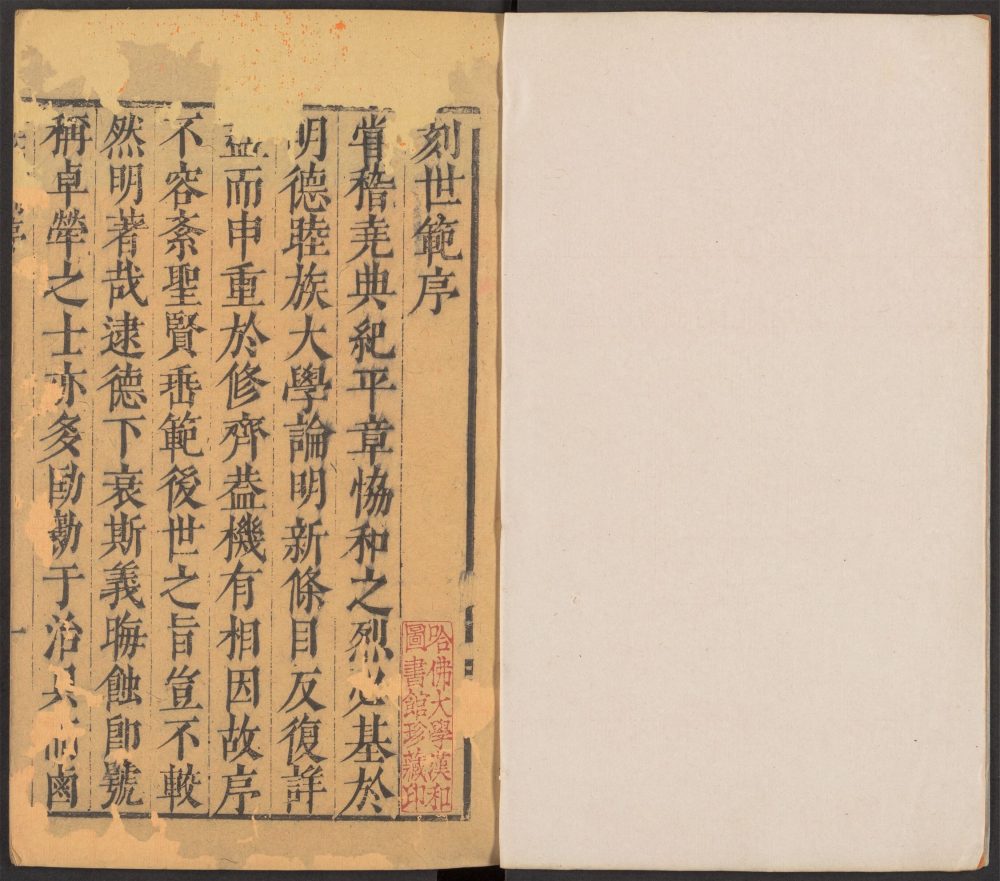 刻世範序
嘗稽堯典紀平章恊和之烈必基於
明德睦族大學論明新條目反復詳
並而申重於修齊葢機有相因故序
不容紊聖賢垂範後世之旨豈不較
然明著哉逮德下衰斯義晦蝕卽號
稱卓犖之士亦多勛勷于治具而鹵
序
一
哈佛大學漢和
圖書館珍藏印